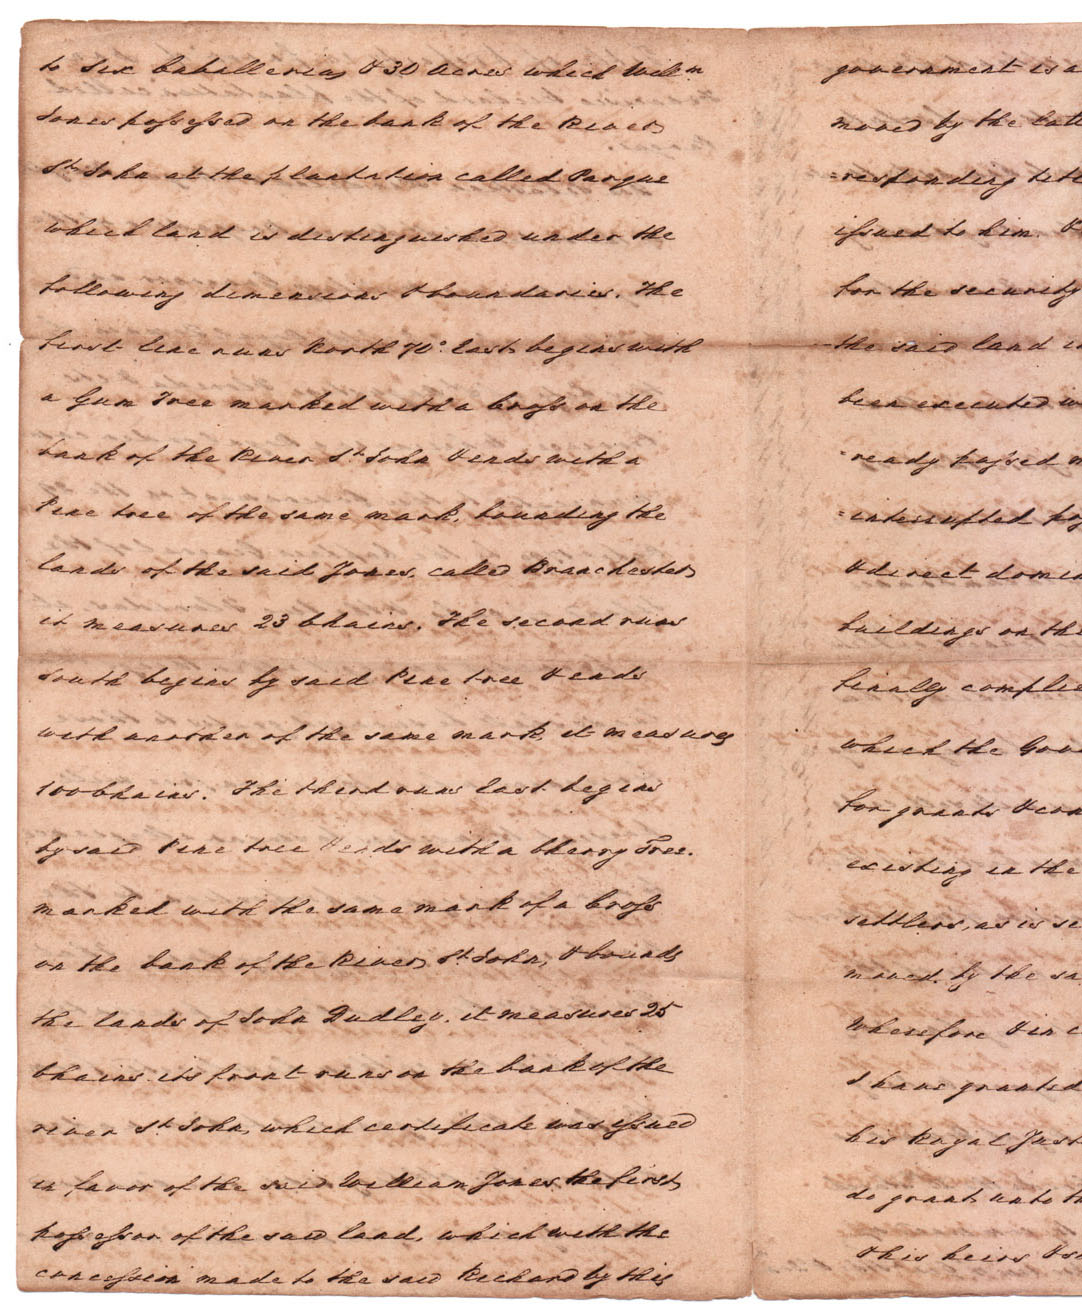 to six Caballerias & 30 Acres which Willm
Jones possessed on the bank of the River
St John at the plantation called Parque
which land is distinguished under the
following dimensions & boundaries. The
first line runs North 70° East, begins with
a Gum Tree marked with a Cross on the
bank of the River St John & ends with a
Pine tree of the same mark, bounding the
lands of the said Jones, called Branchester
it measures 23 Chains. The second runs
South begins by said Pine tree & ends
with another of the same mark, it measures
100 Chains. The third runs East begins
by said Pine tree & ends with a Cherry Tree.
marked with the same mark of a Cross
on the bank of the River St John, & bounds
the lands of John Dudley. it measures 25
Chains its front runs on the bank of the
river St John, which certificate was issued
in favor of the said William Jones the first
possessor of the said land, which with the
concession made to the said Richard by this
government is a
moved by the late
=responding title
issued to him. &
for the security
the said land
been executed
=ready passed
=interrupted
& direct
buildings on the
finally
which the
for grants &
existing in the
settlers, as is
moved, by the
Wherefore & in
I have granted
his Royal
do grant unto
& his heirs &